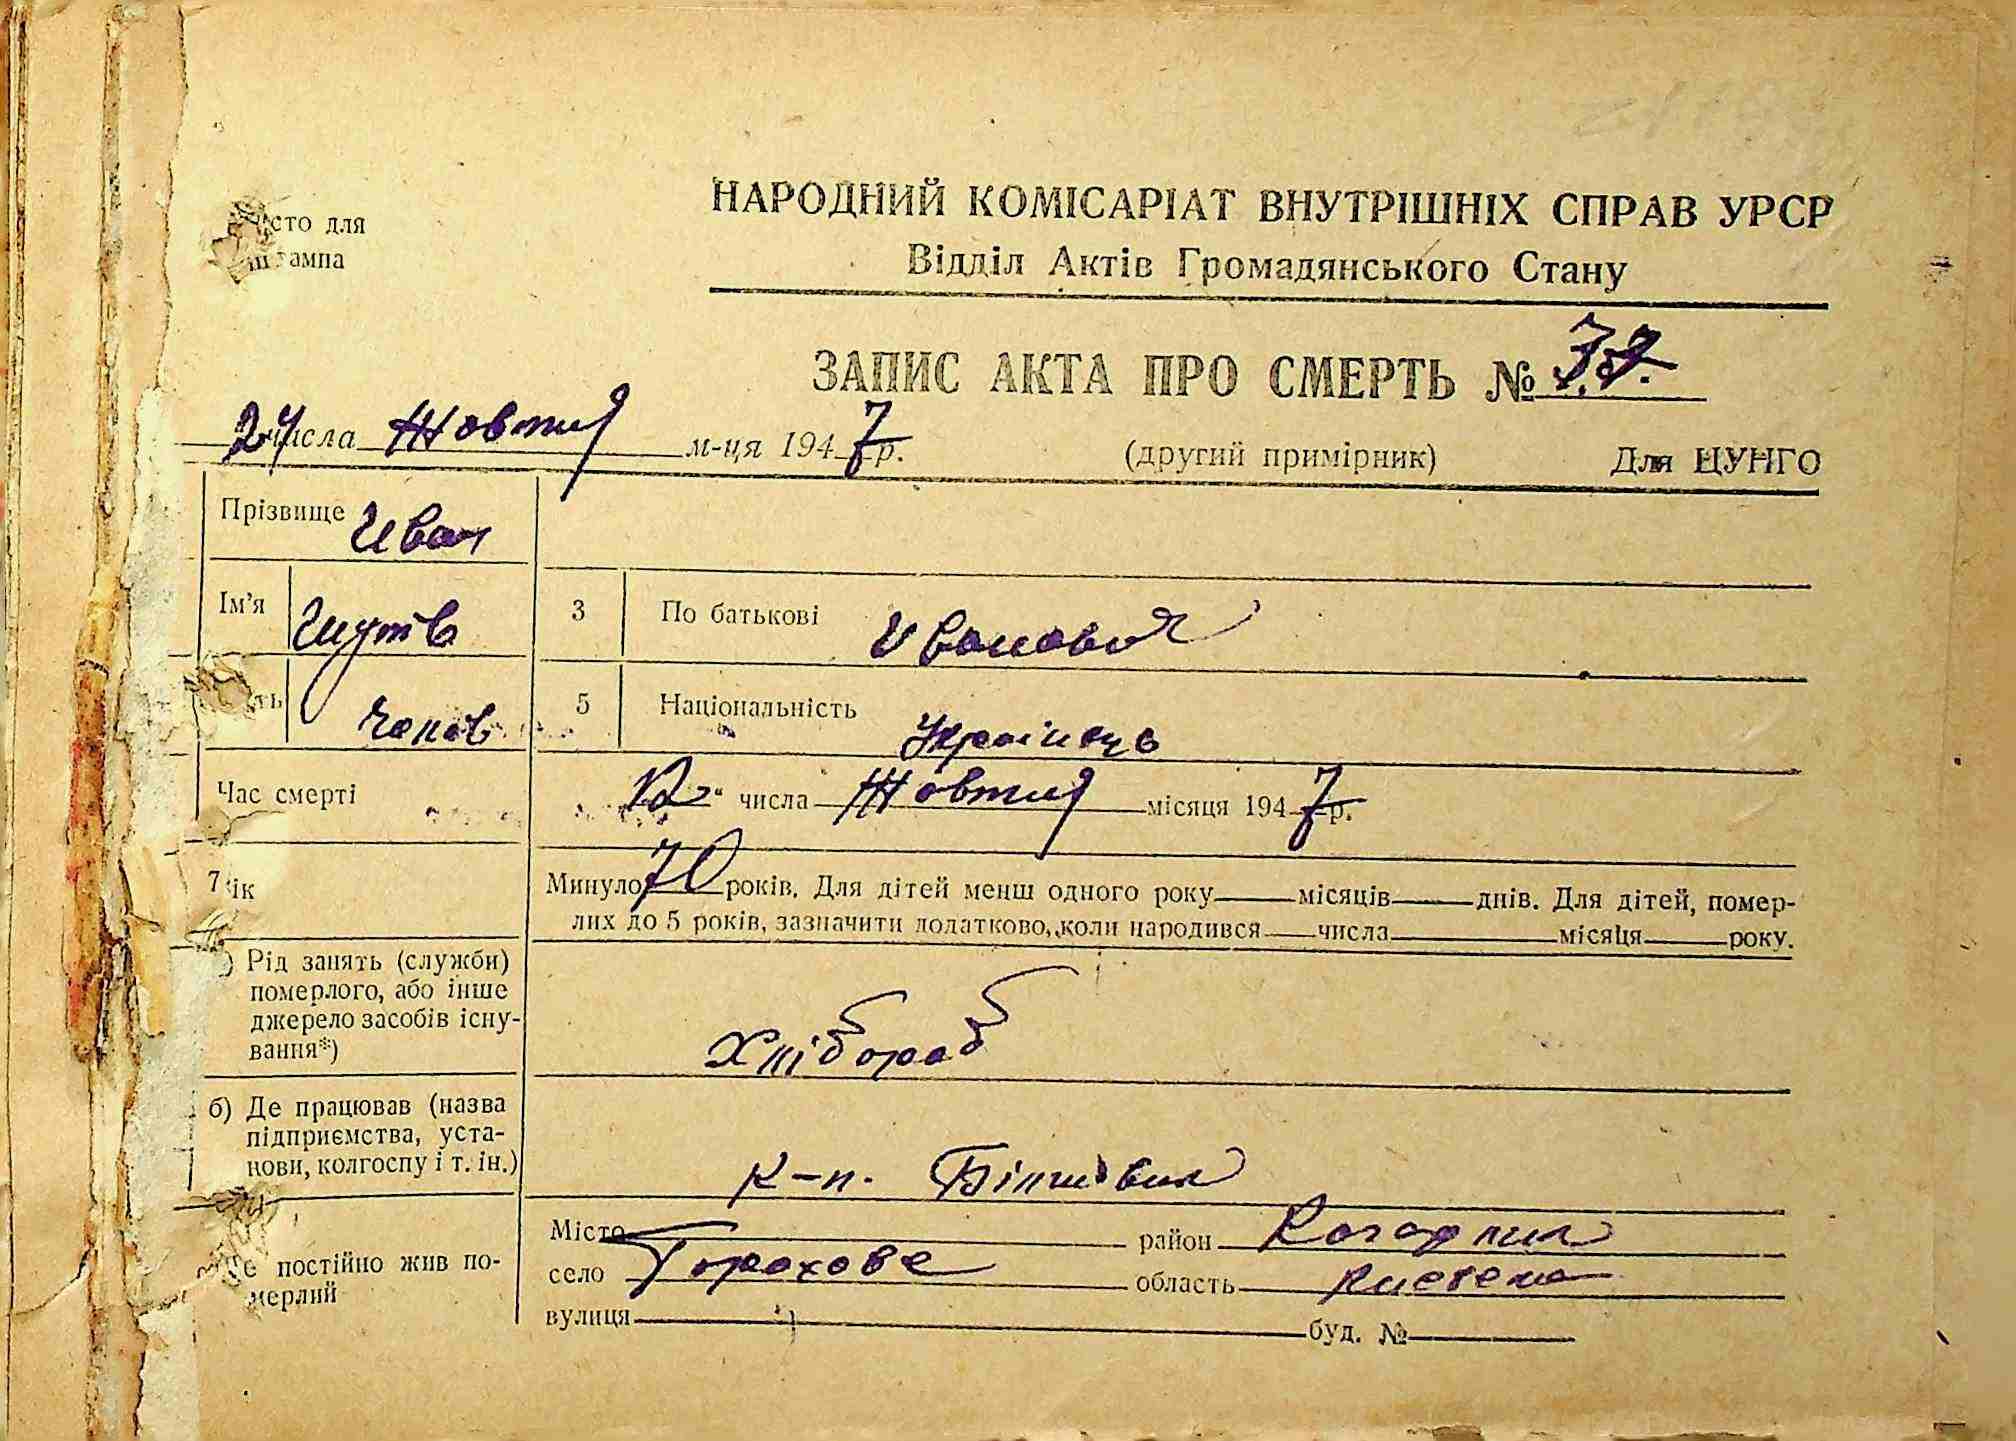 сто для
штампа
НАРОДНИЙ КОМІСАРІАТ ВНУТРІШНІХ СПРАВ УРСР
Відділ Актів Громадянського Стану
ЗАПИС АКТА ПРО СМЕРТЬ №
24 числа Жовтня м-ця 1947 р. (другий примірник) Для ЦУНГО
Прізвище Иван
Ім'я
3 По батькові Иванович
ть чолов
5 Національність Українець
Час смерті 12 " числа Жовтня місяця 1947 р.
7 ік Минуло 70 років. Для дітей менш одного року місяців днів. Для дітей, помер-
лих до 5 років, зазначити додатково, коли народився числа місяця року.
) Рід занять (служби)
померлого, або інше
джерело засобів існу-
вання*)
Хлібороб
б) Де працював (назва
підприємства, уста-
нови, колгоспу і т. ін.)
к-п. Більшовик
е постійно жив по-
мерлий
Місто район
село Горохове область Киевска
вулиця буд. №